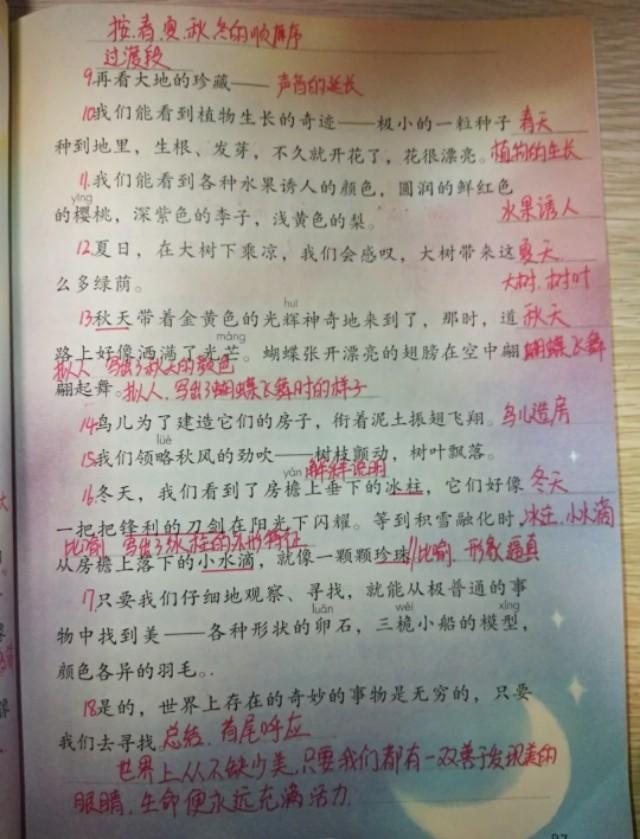 按.春.夏.秋.冬的顺序
过渡段
9.再看大地的珍藏—— 声音的延长
10我们能看到植物生长的奇迹——极小的一粒种子 春天
种到地里，生根、发芽，不久就开花了，花很漂亮。植物的生长
11.我们能看到各种水果诱人的颜色，圆润的鲜红色
yīng
的樱桃，深紫色的李子，浅黄色的梨。 水果诱人
12夏日，在大树下乘凉，我们会感叹，大树带来这 夏天
么多绿荫。 大树.树叶
huī
13秋天带着金黄色的光辉神奇地来到了，那时，道 秋天
máng
路上好像洒满了光芒。蝴蝶张开漂亮的翅膀在空中翩 蝴蝶飞舞
拟人 写出了秋天的景色
翩起舞。拟人.写出了蝴蝶飞舞时的样子
14鸟儿为了建造它们的房子，衔着泥土振翅飞翔。鸟儿造房
lüè
15我们领略秋风的劲吹——树枝颤动，树叶飘落。
yán 解释说明
16.冬天，我们看到了房檐上垂下的冰柱，它们好像 冬天
一把把锋利的刀剑在阳光下闪耀。等到积雪融化时，冰柱.小水滴
比喻 写出了冰柱的外形特征
从房檐上落下的小水滴，就像一颗颗珍珠。比喻.形象逼真
17只要我们仔细地观察、寻找，就能从极普通的事
luǎn wéi xíng
物中找到美——各种形状的卵石，三桅小船的模型，
颜色各异的羽毛。
18是的，世界上存在的奇妙的事物是无穷的，只要
我们去寻找 总结.首尾呼应
世界上从不缺少美，只要我们都有一双善于发现美的
眼睛.生命便永远充满活力.